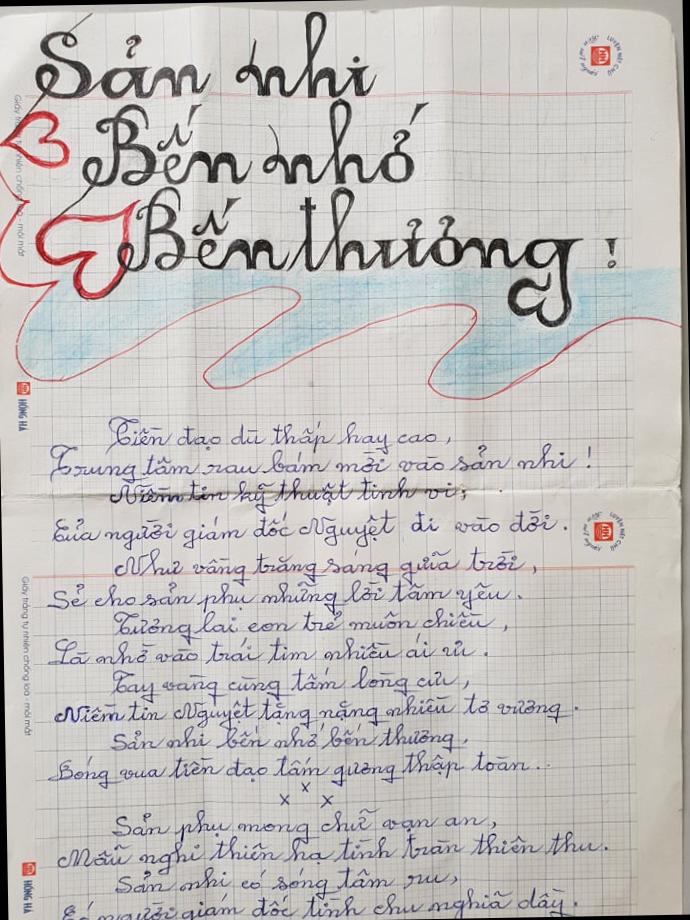 Sản nhi
Bến nhớ
Bến thương !
Tiền đạo dù thấp hay cao,
Trung tâm rau bám mời vào sản nhi !
Niềm tin kỹ thuật tinh vi,
Của người giám đốc Nguyệt đi vào đời.
Như vầng trăng sáng giữa trời,
Sẻ cho sản phụ những lời tâm yêu.
Tương lai con trẻ muôn chiều,
Là nhờ vào trái tim nhiều ái ủ.
Tay vàng cùng tấm lòng cứu,
Niềm tin Nguyệt tặng nặng nhiều tơ vương.
Sản nhi bến nhớ bến thương,
Bóng vua tiền đạo tấm gương thập toàn..
x x x
Sản phụ mong chữ vạn an,
Mẫu nghi thiên hạ tình tràn thiên thu.
Sản nhi có sóng tâm ru,
Có người giám đốc tình chu nghĩa dầy.
Giấy trắng tự nhiên chống lóa - mỏi mắt
HỒNG HÀ
LUYỆN NÉT CHỮ
RÈN NẾT NGƯỜI
LUYỆN NÉT CHỮ
RÈN NẾT NGƯỜI
Giấy trắng tự nhiên chống lóa - mỏi mắt
HỒNG HÀ